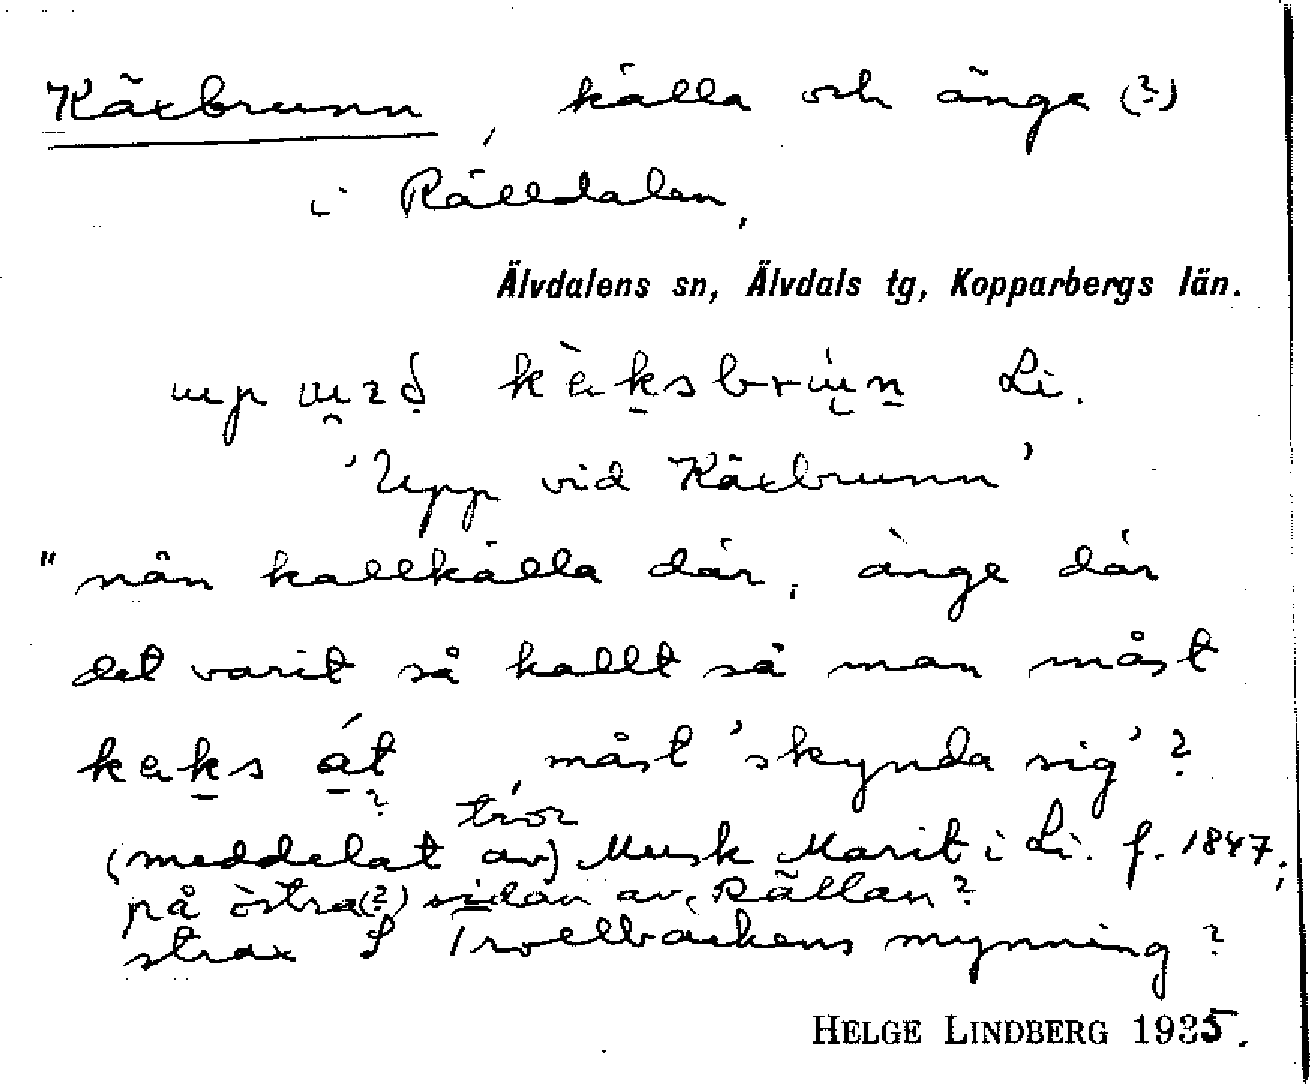 Käxbrunn, källa och änge (?)
i Rälldalen,
Älvdalens sn, Älvdals tg, Kopparbergs län.
Li.
'Upp vid Käxbrunn'
"nån kallkälla där, änge där
det varit så kallt så man måst
kaks át, måst 'skynda sig'?
? tror
(meddelat av) Musk Marit i Li. f. 1847;
på östra(?) sidan av Rällan?
strax S Trollbäckens mynning?
HELGE LINDBERG 1935.